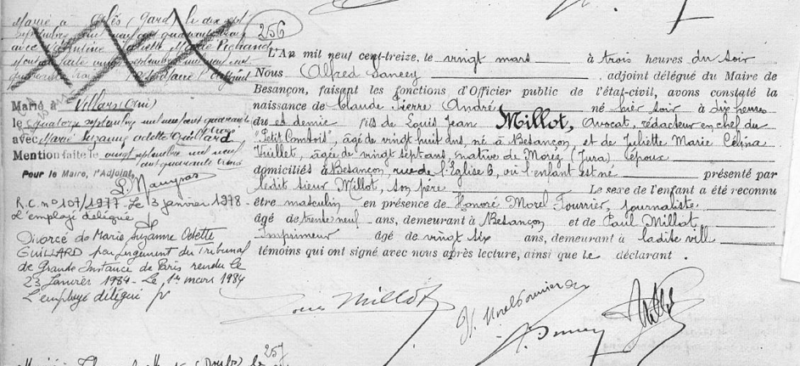 Marié à (Gard) le dix sept
septembre mil neuf cent quarante trois
avec
256
L'An mil neuf cent-treize, le vingt mars à trois heures du soir
Nous Alfred adjoint délégué du Maire de
Besançon, faisant les fonctions d'Officier public de l'état-civil, avons constaté la
naissance de Claude Pierre André né hier soir à dix heures
du et demie fils de Louis Jean Millot, Avocat, rédacteur en chef du
"Petit Comtois", âgé de vingt huit ans, né à Besançon et de Juliette Marie Célina
Vuillet, âgée de vingt sept ans, native de Morez (Jura), époux
domiciliés à Besançon, rue de l'Église 6, où l'enfant est né présenté par
ledit sieur Millot, son père Le sexe de l'enfant a été reconnu
être masculin en présence de Honoré Morel Fourrier, journaliste
âgé de trente neuf ans, demeurant à Besançon et de Paul Millot
Imprimeur âgé de vingt six ans, demeurant à ladite ville
témoins qui ont signé avec nous après lecture, ainsi que le déclarant.
Marié à Villars (Ain)
le quatorze septembre mil neuf cent quarante trois
avec Marie Suzanne Odette Guillard
Mention faite le vingt septembre mil neuf
cent quarante trois
Pour le Maire, l'Adjoint,
R.C. n° 107/1977. Le 3 janvier 1978
L'employé délégué
Divorcé de Marie Suzanne Odette
GUILLARD par Jugement du Tribunal
de Grande Instance de Paris rendu le
23 Janvier 1984 - Le 1er mars 1984
L'employé délégué
Louis Millot
H. Morel Fourrier
Millot
257